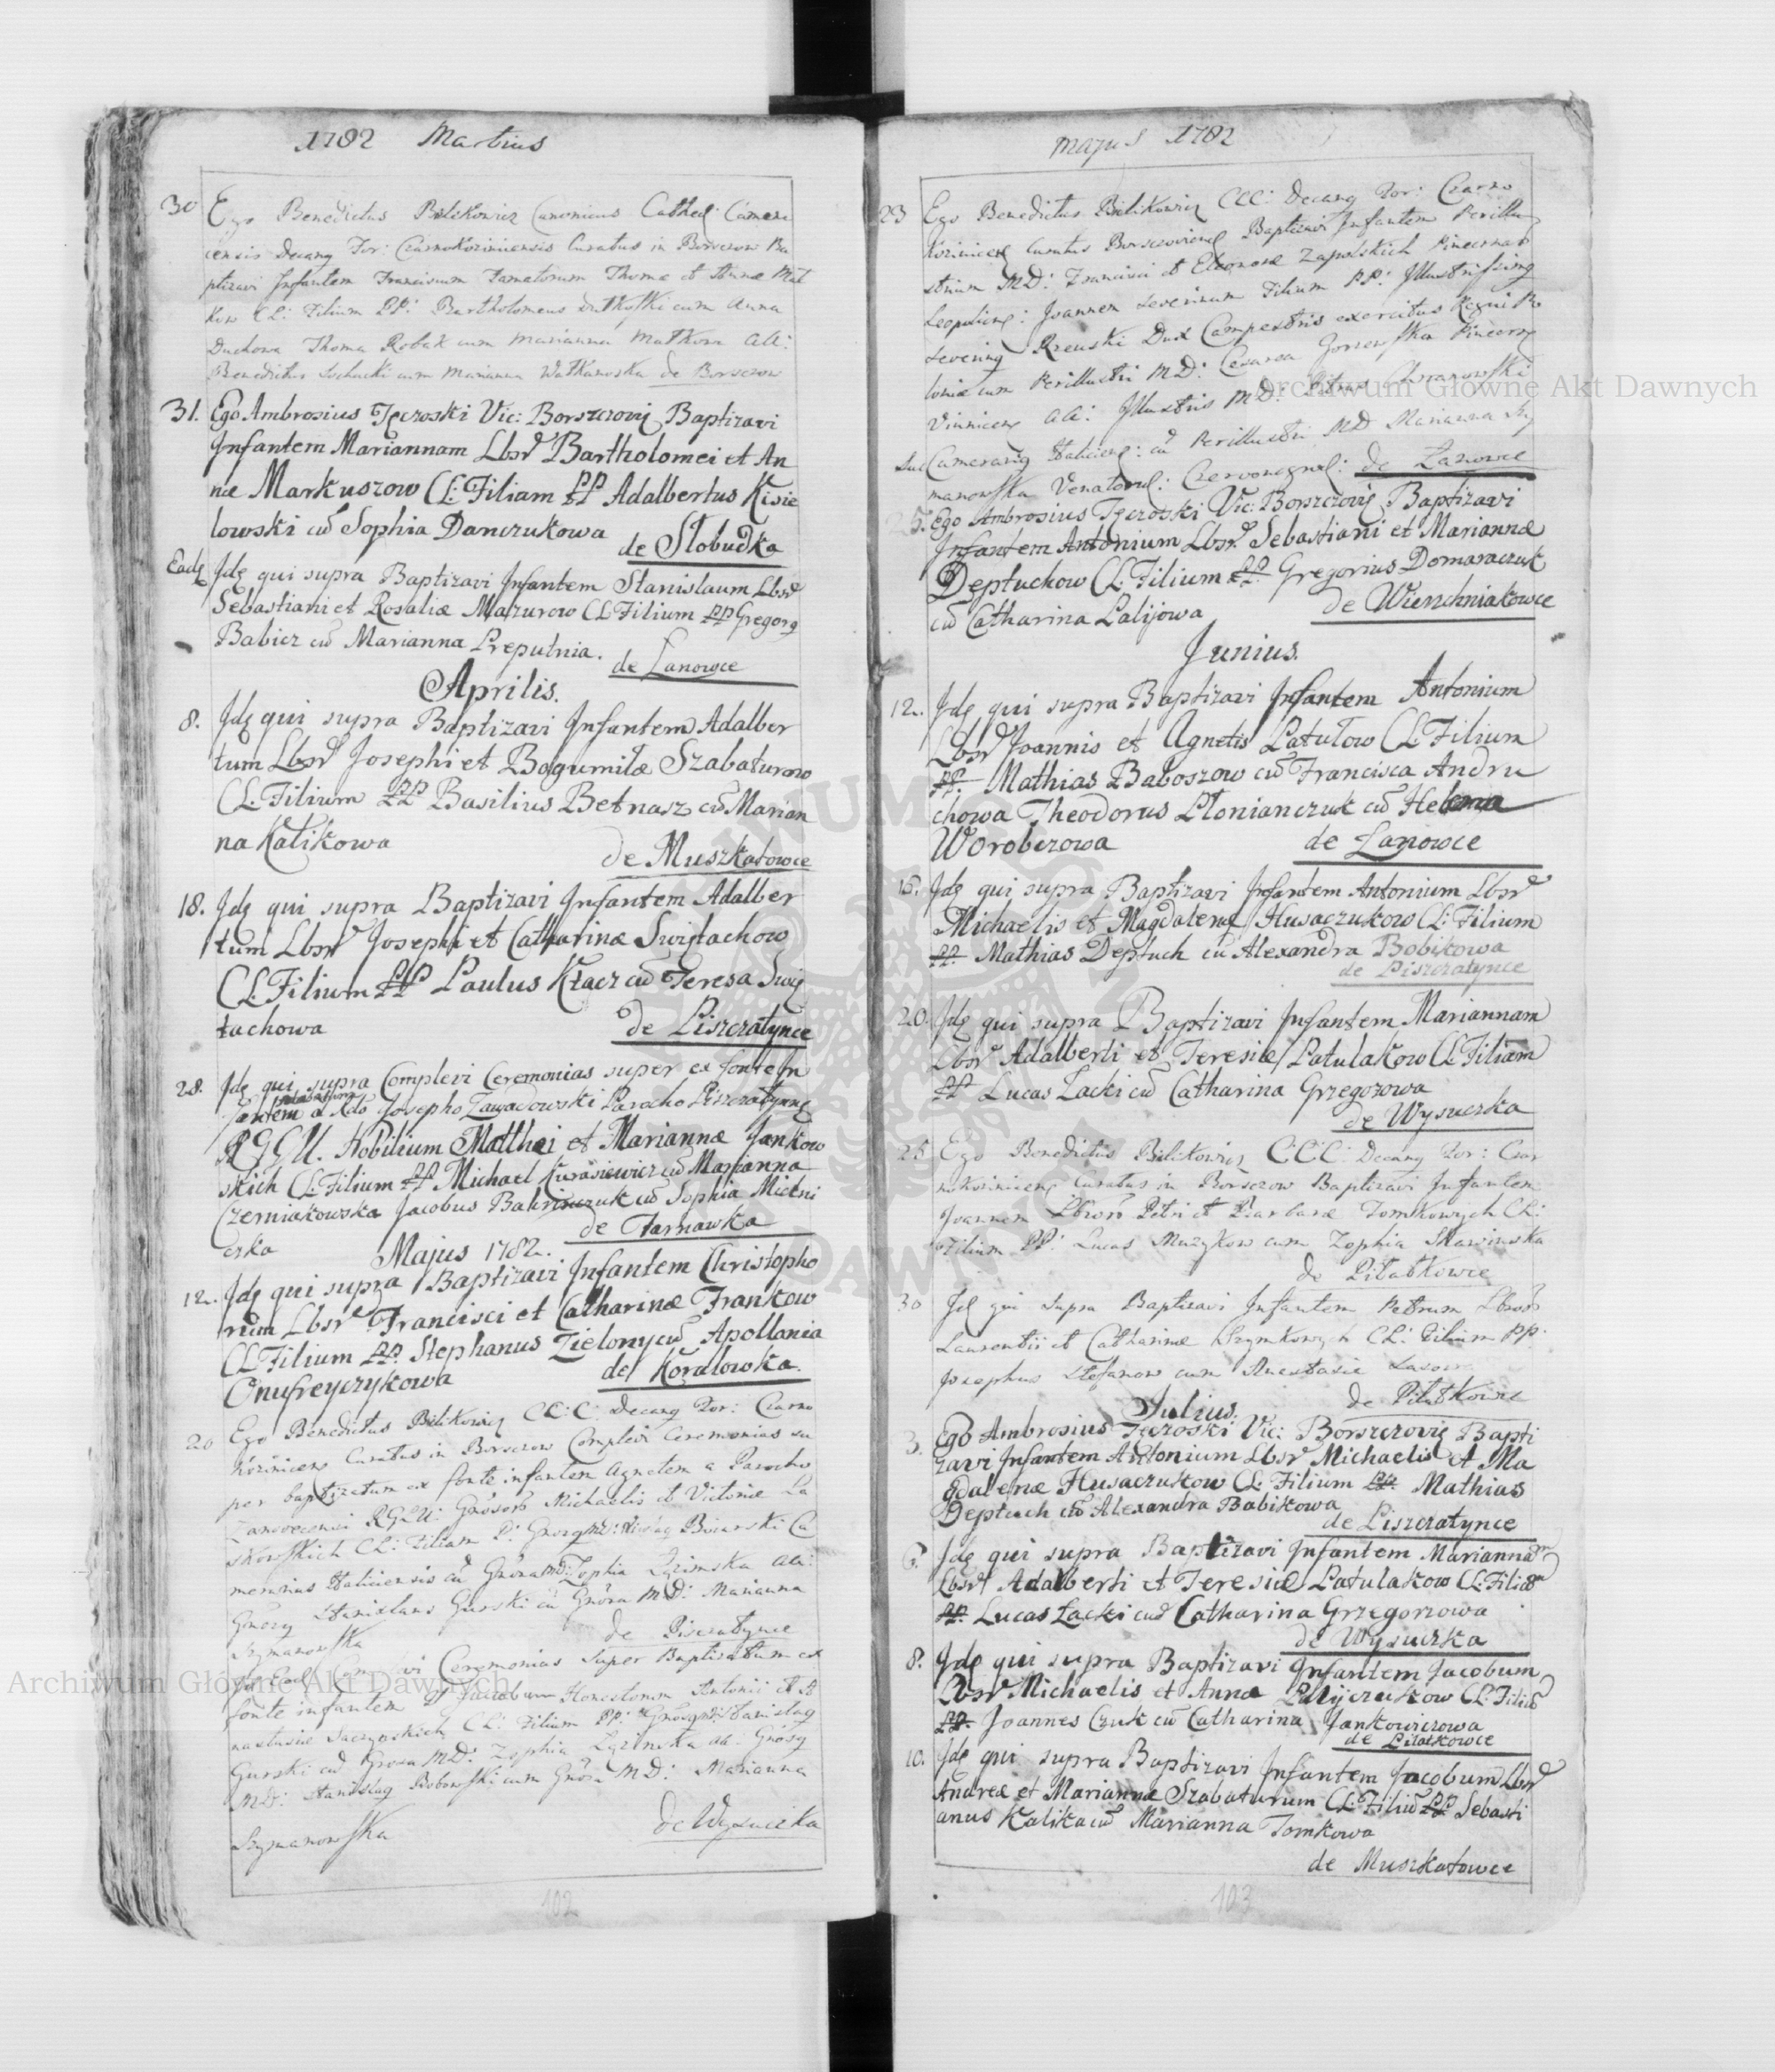 1782 Martius
30 Ego Benedictus Bilikowicz Canonicus Cathed: Camene
censis Decang For: Czarnokoziniensis Curatus in Borszczow Ba
ptizavi Infantem Franciscum Famatorum Thoma et Anna Mat
kow CL: Filium PP: Bartholomeus Dutkoski cum Anna
Duchowa Thoma Robak cum Marianna Matkowa Alii:
Benedictus Sochacki cum Marianna Watkanoska de Borszczow
31. Ego Ambrosius Tęczoski Vic: Borszczovię Baptizavi
Infantem Mariannam Lbsr Bartholomei et An
næ Markuszow CL: Filiam PP Adalbertus Kisie
lowski cũ Sophia Danczukowa
de Slobudka
Eadę Idę qui supra Baptizavi Infantem Stanislaum Lbsr
Sebastiani et Rosaliæ Mazurow CL Filium PP Gregorg
Babicz cũ Marianna Prepulnia.
de Lanowce
Aprilis.
8. Idę qui supra Baptizavi Infantem Adalber
tum Lbsr Josephi et Bogumilæ Szabaturow
CL. Filium PP Basilius Betnasz cũ Marian
na Kalikowa
de Muszkatowce
18. Idę qui supra Baptizavi Infantem Adalber
tum Lbsr Josephi et Catharinæ Swiętachow
CL. Filium PP Paulus Kłacz cũ Teresa Swię
tachowa
de Piszczatynce
28. Idę qui supra Complevi Ceremonias super ex fonte In
fantem a Rdo Josepho Zawadowski Parocho Piszczatynnę
RGGU. Nobilium Matthæi et Mariannæ Jankow
skich CL: Filium PP Michael Kurasiewicz cũ Marianna
Czerniakowska Jacobus Bakrinczuk cũ Sophia Mielni
czka
de Tarnawka
Majus 1782.
12. Idę qui supra Baptizavi Infantem Christopho
rum Lbsr Francisci et Catharinæ Frankow
CL Filium PP. Stephanus Zielony cũ Apollonia
Onufreyczykowa
de Korolowka.
20 Ego Benedictus Bilikowicz CC:C Decang For: Czarno
Kozinicens Curatus in Borszczow Complevi Ceremonias su
per baptizatum ex fonte infantem Agnetem a Parocho
Lanovecensi RGGU: Gnosorũ Michaelis et Victoriæ La
skowskich CL: Filiam P: Gnosg MD: Bicarski Ca
merarius Haliciensis cũ Gnosa MD: Zophia Lęzinska Alii:
Gnosg Stanislaus Gurski cũ Gnosa MD: Marianna
Szymanowska
de Piszczatynce
Complevi Ceremonias Super Baptizatum ex
fonte infantem Jacobum Honestorum Antonii et A
nastasiæ Saczynskich CL: Filium PP: Gnosg MD: Stanislag
Gurski cũ Gnosa MD: Zophia Lęzinska Alii: Gnosg
MD: Stanislag Bobowski cum Gnosa MD: Marianna
Szymanowska
de Wysuczka
102
Majus 1782
23 Ego Benedictus Bilikowicz CCC: Decang For: Czarno
Kozinicens Curatus Borszczoviens Baptizavi Infantem Perillu
strium MD: Francisci et Eleonoræ Zapolskich Pincernar
Leopoliens: Joannem Severinum Filium PP: Illustrissimg
Severing Rzewuski Dux Campestris exercitus Regni Po
loniæ cum Perillustri MD: Cesarea Gorzewska Pincerng
Vinnicens Alii: Illustris MD: Petrus Chrzanowski
Camerarig Haliciens: cũ Perillustri MD Marianna Szy
manowska Venatorul: Czerwonogrod: de Lanowce
25. Ego Ambrosius Tęczoski Vic: Borszczovię Baptizavi
Infantem Antonium Lbsr. Sebastiani et Mariannæ
Deptuchow CL. Filium PP. Gregorius Domaraczuk
cũ Catharina Lalijowa
de Wierzchniakowce
Junius.
12. Idę qui supra Baptizavi Infantem Antonium
Lbsr Joannis et Agnetis Patułow CL. Filium
PP. Mathias Baboszow cũ Francisca Andru
chowa Theodorus Płonianczuk cũ Helena
Worobczowa
de Lanowce
18. Idę qui supra Baptizavi Infantem Antonium Lbsr
Michaelis et Magdalenæ Husaczukow CL: Filium
PP. Mathias Deptuch cũ Alexandra Bobikowa
de Piszczatynce
20. Idę qui supra Baptizavi Infantem Mariannam
Lbsr Adalberti et Teresiæ Patulakow CL Filiam
PP Lucas Lacki cũ Catharina Grzegorzowa
de Wysuczka
25 Ego Benedictus Bilikowicz CCC: Decang For: Czar
nokozinicens Curatus in Borszczow Baptizavi Infantem
Joannem Lbsorũ Petri et Barbaræ Tomkowych CL:
Filium PP: Lucas Muzykow cum Zophia Skawinska
de Piłatkowce
30 Id qui supra Baptizavi Infantem Petrum Lbsorũ
Laurentii et Catharinæ Szymkowych CL: Filium PP:
Josephus Stefanow cum Anastasia
de Piłatkowce
Julius.
3. Ego Ambrosius Tęczoski Vic: Borszczovię Bapti
zavi Infantem Antonium Lbsr Michaelis et Ma
gdalenæ Husaczukow CL. Filium PP. Mathias
Deptuch cũ Alexandra Babikowa
de Piszczatynce
6. Idę qui supra Baptizavi Infantem Mariannam
Lbsr Adalberti et Teresiæ Patulakow CL: Filiam
PP. Lucas Lacki cũ Catharina Grzegorzowa
de Wysuczka
8. Idę qui supra Baptizavi Infantem Jacobum
Lbsr Michaelis et Annæ Palijczukow CL: Filiũ
PP. Joannes Czuk cũ Catharina Jankowiczowa
de Piłatkowce
10. Idę qui supra Baptizavi Infantem Jacobum Lbsr
Andreæ et Mariannæ Szabaturum CL: Filiũ PP Sebasti
anus Kalika cũ Marianna Tomkowa
de Muszkatowce
103
Archiwum Główne Akt Dawnych
Archiwum Główne Akt Dawnych